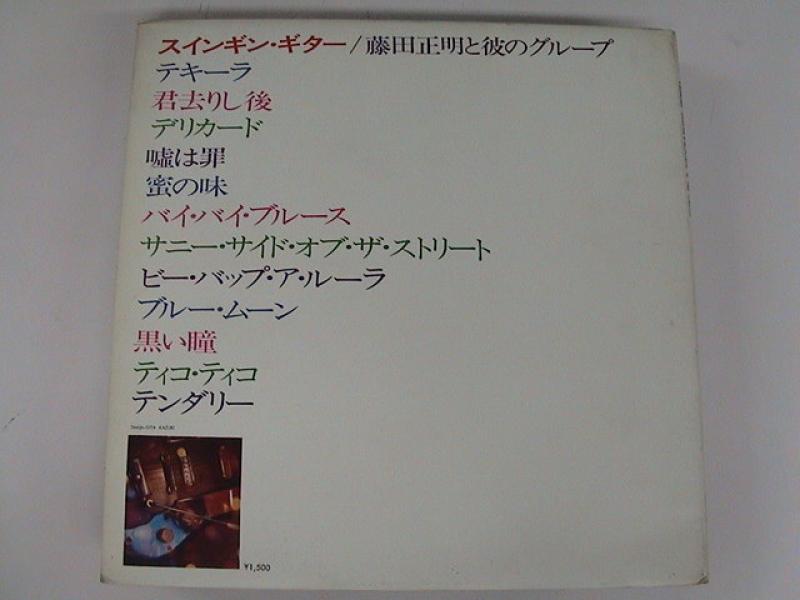 スインギン・ギター/藤田正明と彼のグループ
テキーラ
君去りし後
デリカード
嘘は罪
蜜の味
バイ・バイ・ブルース
サニー・サイド・オブ・ザ・ストリート
ビー・バップ・ア・ルーラ
ブルー・ムーン
黒い瞳
ティコ・ティコ
テンダリー
¥1,500